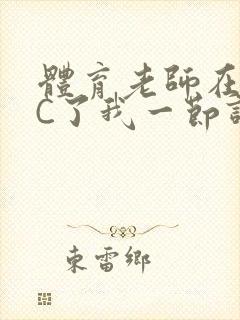 體育老師在
C了我一節
東雷鄉